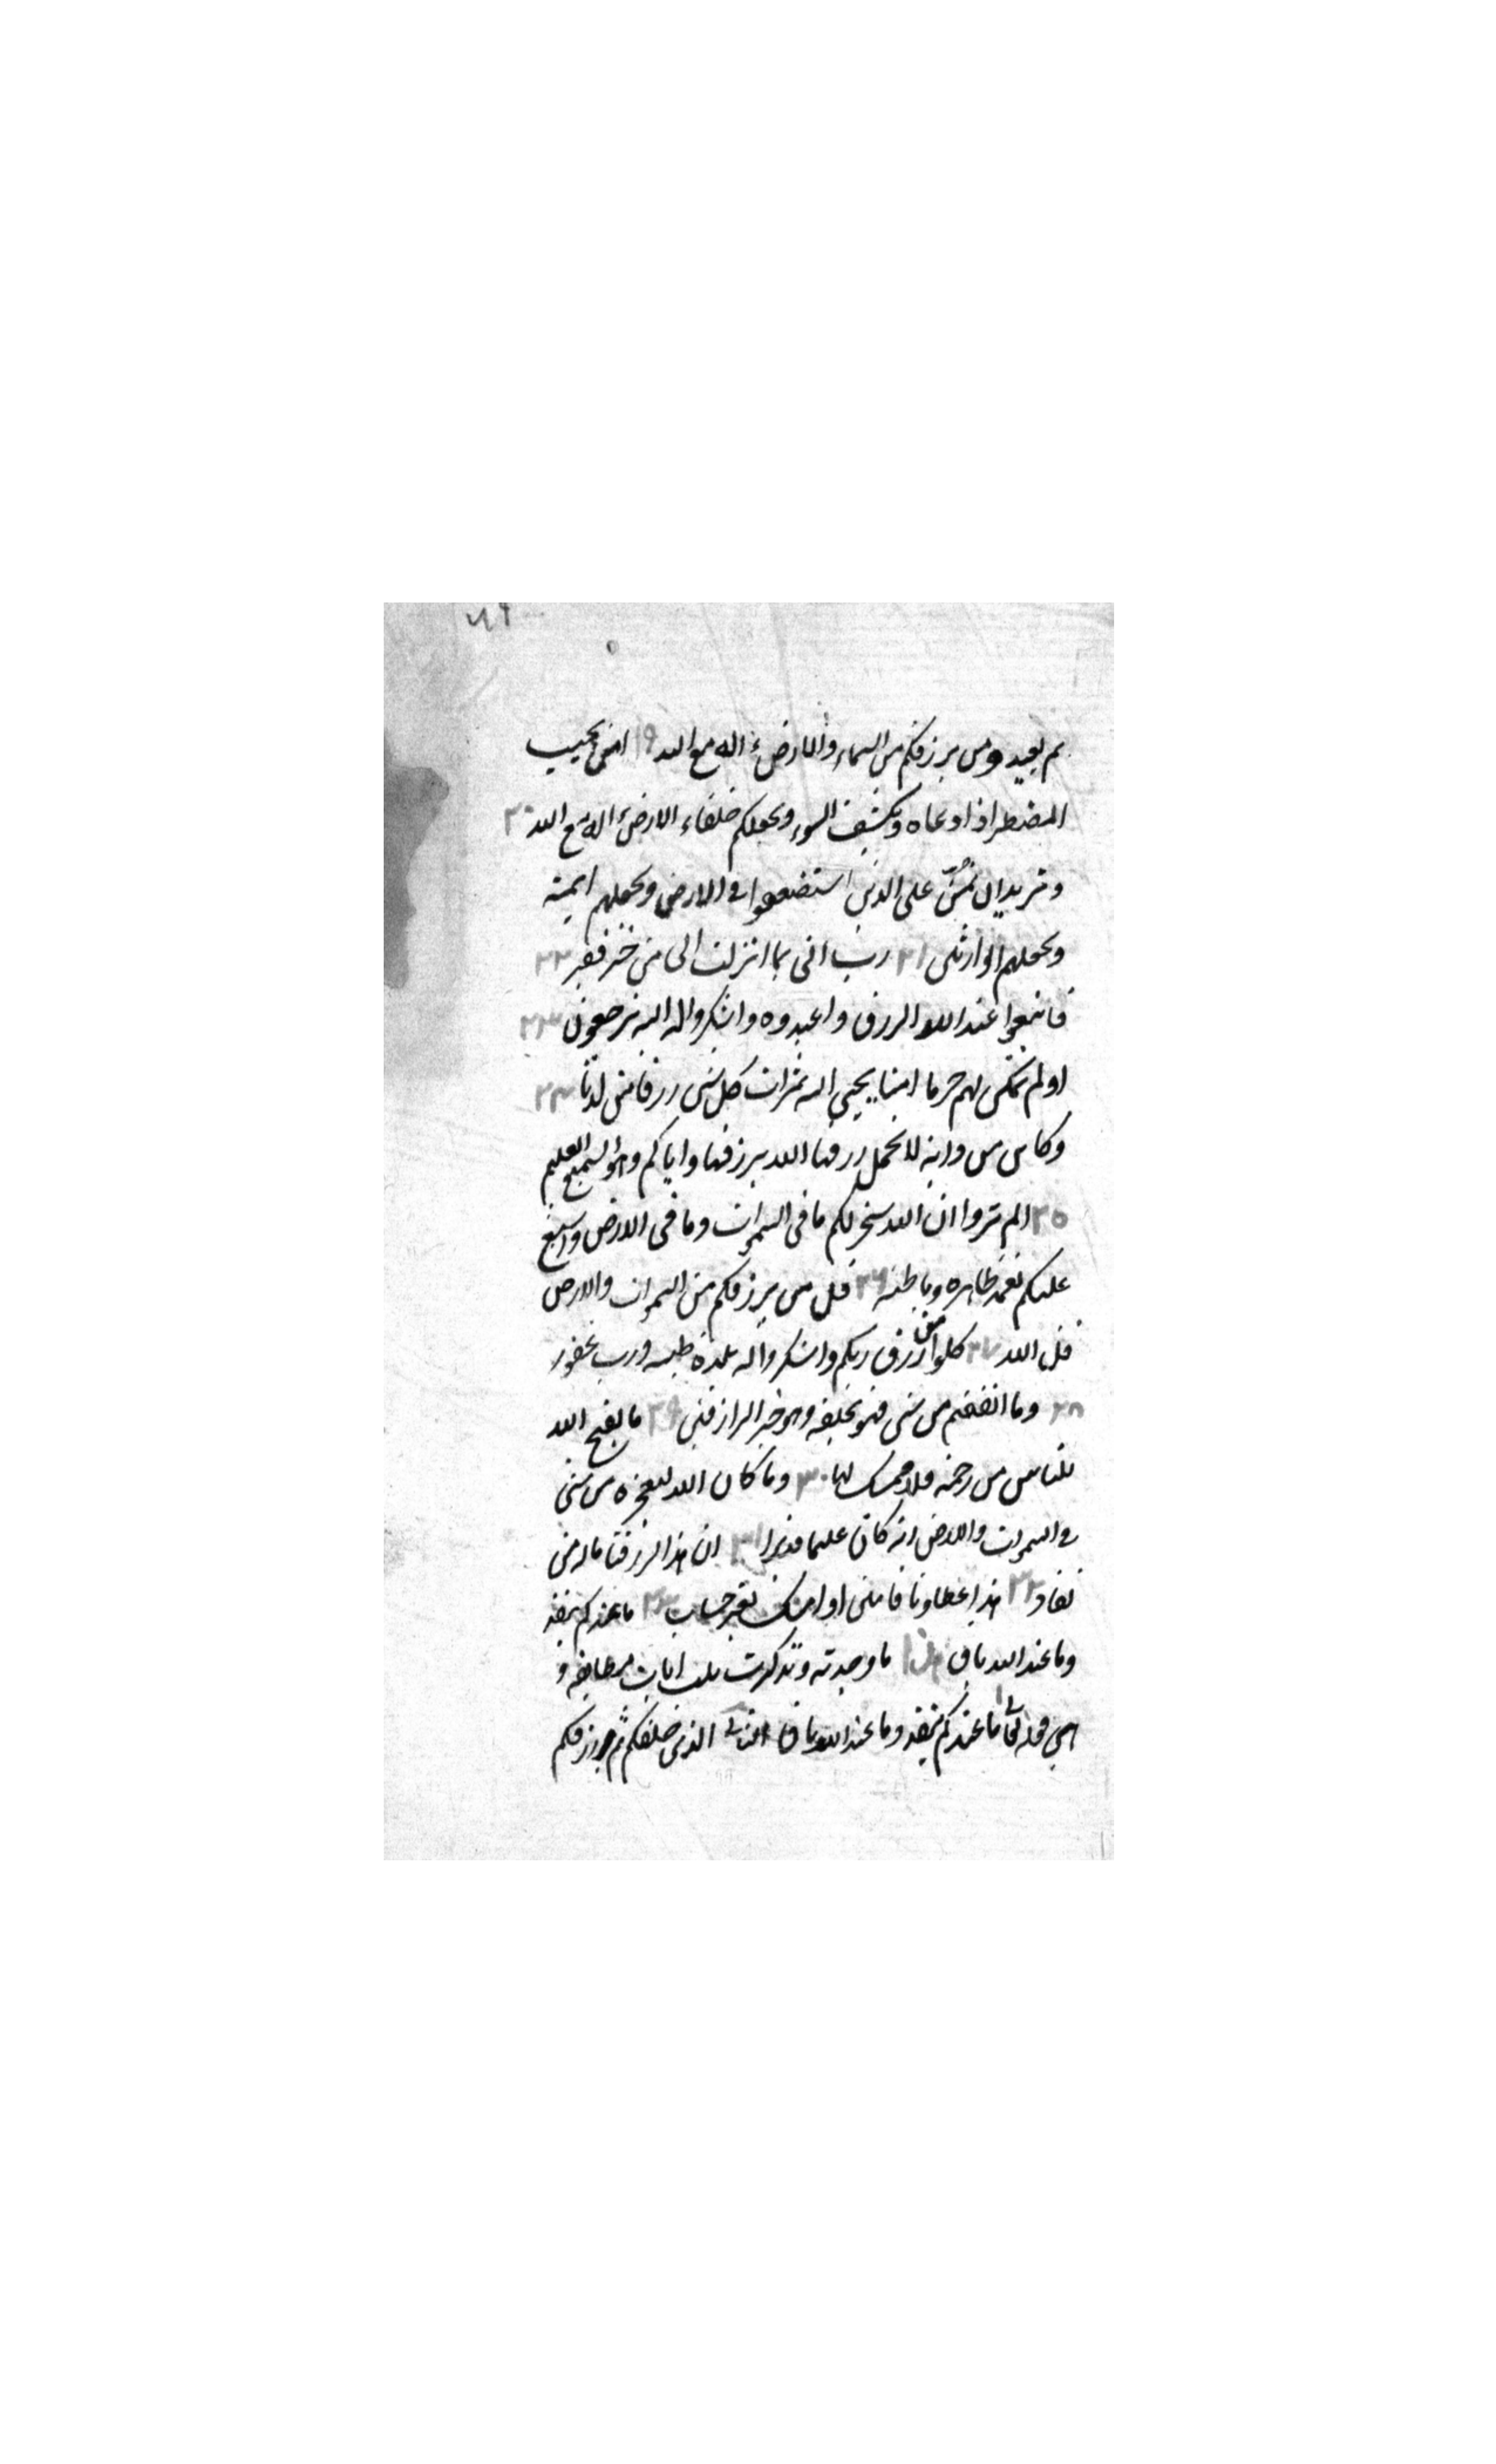 ثم يعيده ومن يرزقكم من السماء والارض ءاله مع الله ١٩ امن يجيب
المضطر اذا دعاه ويكشف السوء ويجعلكم خلفاء الارض ءاله مع الله ٢٠
ونريد ان نمنّ على الذين استضعفوا في الارض ونجعلهم ايمة
ونجعلهم الوارثين ٢١ رب اني بما انزلت الى من خير فقير ٢٢
فابتغوا عند الله الرزق واعبدوه واشكروا له اليه ترجعون ٢٣
اولم نمكن لهم حرما امنا يجبى اليه ثمرات كل شي رزقا من لدنا ٢٤
وكاين من دابة لا تحمل رزقها الله يرزقها واياكم وهو السميع العليم
٢٥ الم تروا ان الله سخر لكم ما في السموات وما في الارض واسبغ
عليكم نعمه ظاهرة وباطنة ٢٦ قل من يرزقكم من السموات والارض
قل الله ٢٧ كلوا من رزق ربكم واشكروا له بلدة طيبة ورب غفور
٢٨ وما انفقتم من شي فهو يخلفه وهو خير الرازقين ٢٩ ما يفتح الله
للناس من رحمة فلا ممسك لها ٣٠ وما كان الله ليعجزه من شي
في السموات والارض انه كان عليما قديرا ٣١ ان هذا لرزقنا ماله من
نفاد ٣٢ هذا عطاونا فامنن او امسك بغير حساب ٣٣ ما عندكم ينفد
وما عند الله باق هذا ما وجدته وتذكرت ثلث ايات مطابقة و
هي قوله تعالى ما عندكم ينفد وما عند الله باق الثاني الذي خلقكم ثم رزقكم